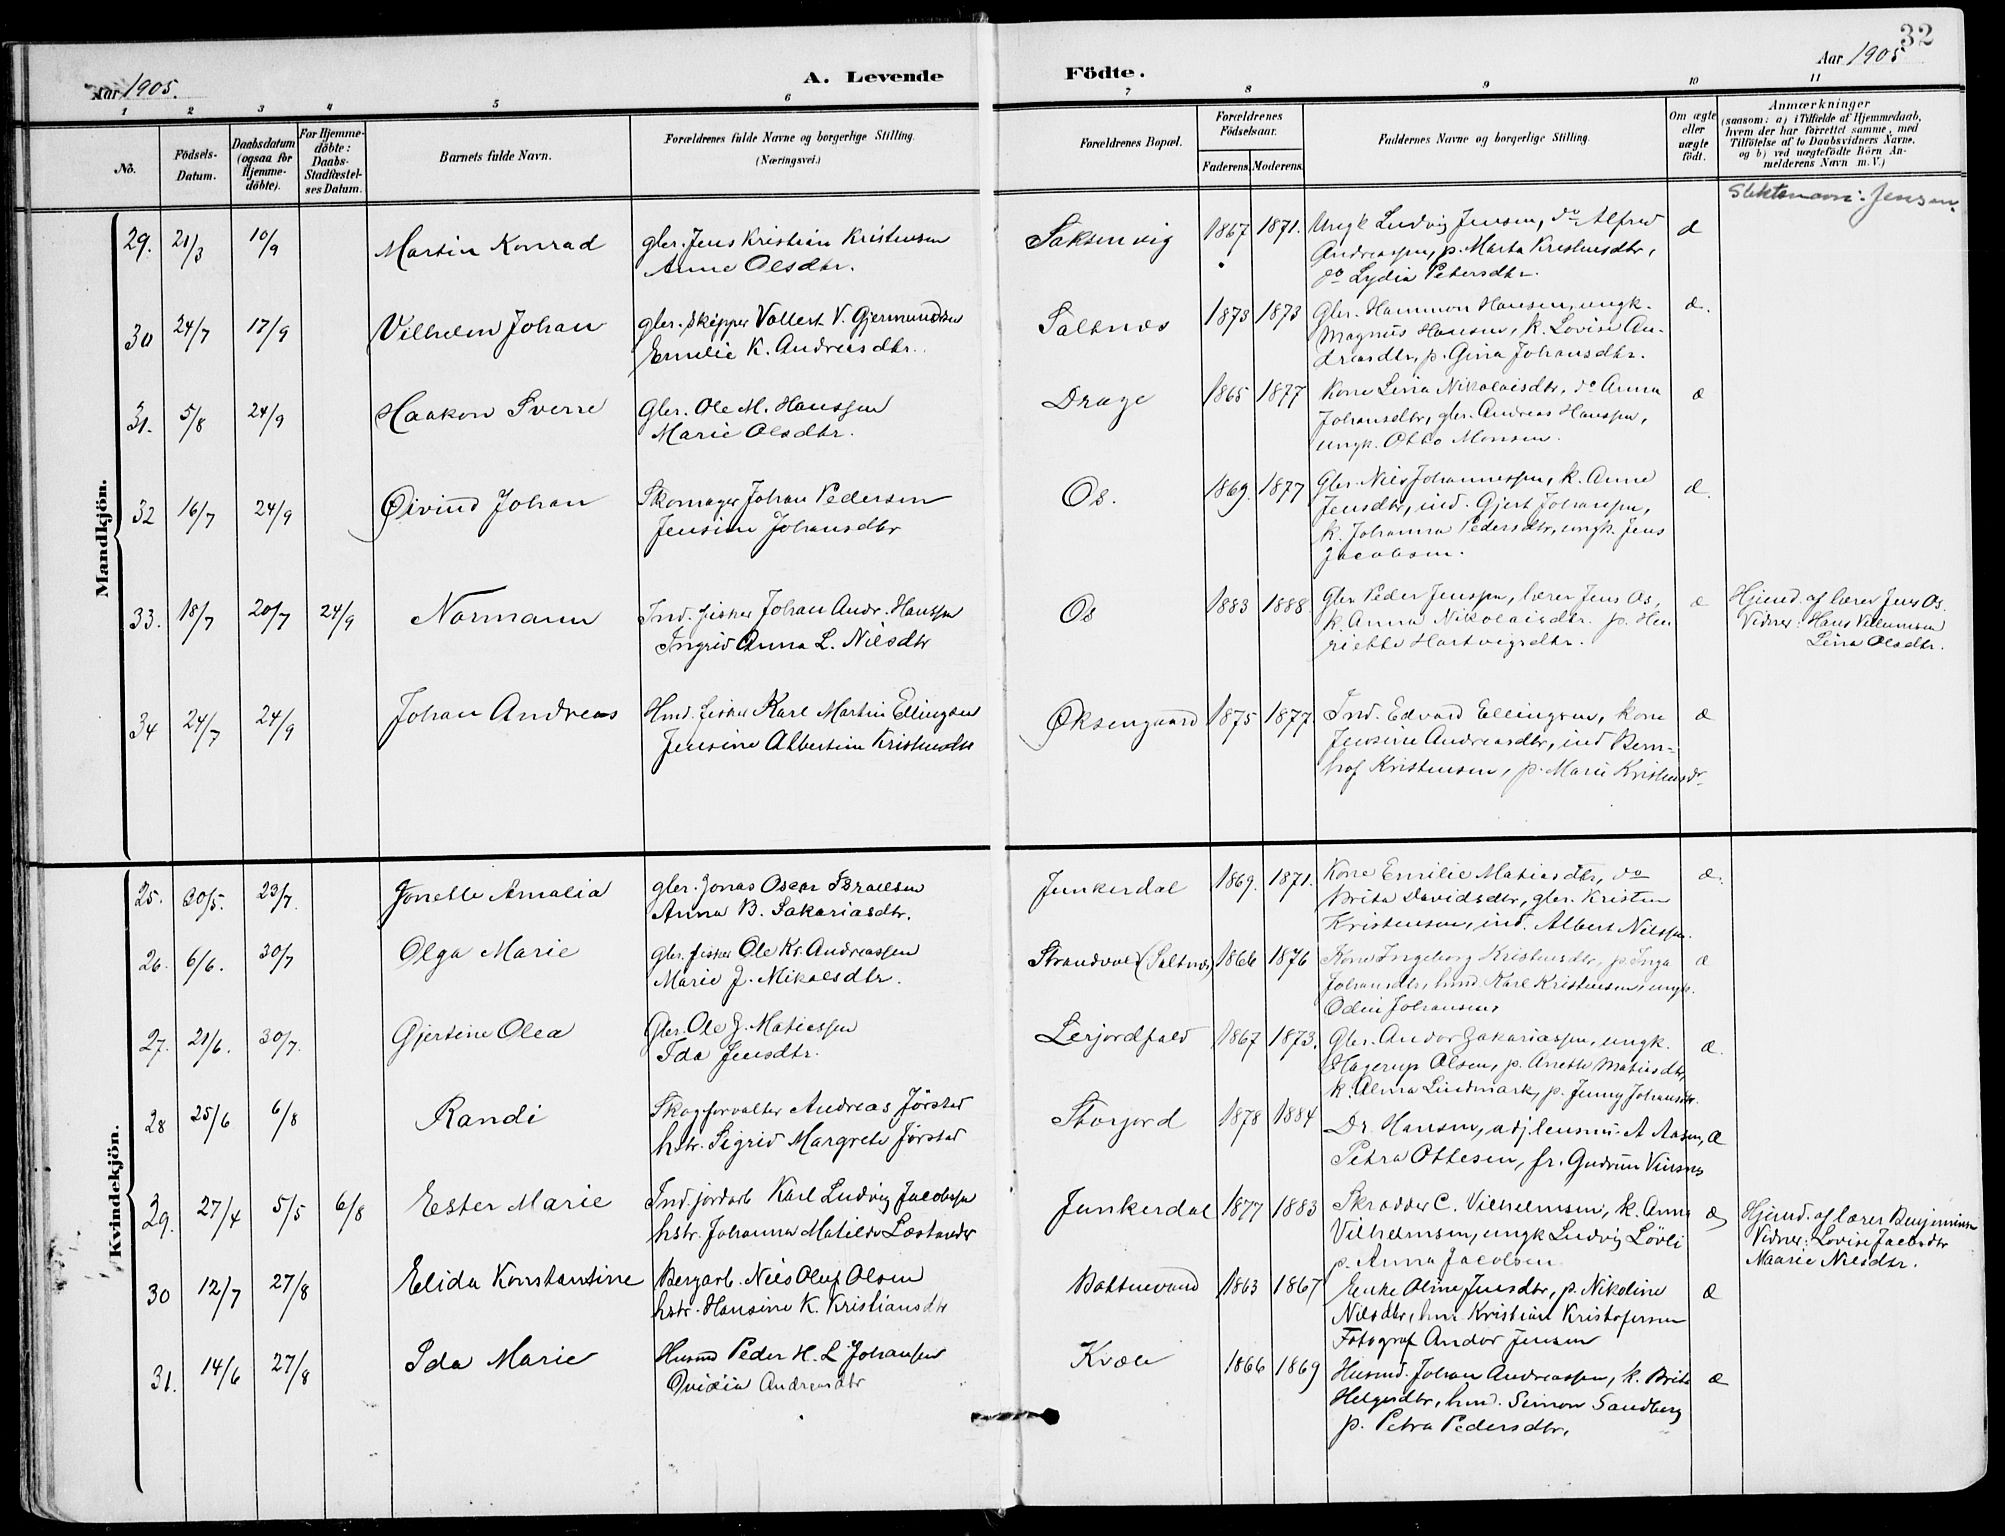 32
Aar 1905.
A. Levende
Födte.
Aar 1905
1 2 3 4 5 6 7 8 9 10 11
No.
Födsels-Datum.
Daabsdatum (ogsaa for Hjemme-döbte).
For Hjemme-döbte: Daabs-Stadfæstel-ses Datum.
Barnets fulde Navn.
Forældrenes fulde Navne og borgerlige Stilling.
(Næringsvei.)
Forældrenes Bopæl.
Forældrenes Födselsaar.
Faderens. Moderens.
Faddernes Navne og borgerlige Stilling.
Om ægte eller uægte födt.
Anmærkninger
(saasom: a) i Tilfælde af Hjemmedaab,
hvem der har forrettet samme, med
Tilföielse af to Daabsvidners Navne,
og b) ved uægtefödte Börn An-
melderens Navn m. V.)
Mandkjön.
Slektsnavn: Jensen.
29. 21/3 10/9 Martin Konrad gbr. Jens Kristian Kristensen Saksenvig 1867 1871. Ungk Ludvig Jensen, do Alfred æ
Anne Olsdtr. Andreassen, p. Marta Kristensdtr,
do Lydia Petersdtr.
30 24/7 17/9 Vilhelm Johan gbr. skipper Vollert V. Gjermundsen Saltnes 1873 1873 Gbr. Hammon Hansen, ungk. æ.
Emilie K. Andreasdtr. Magnus Hansen, k. Lovise An-
dreasdtr, p. Gina Johansdtr.
31. 5/8 24/9 Haakon Sverre Gbr. Ole M. Hanssen Drage 1865 1877 Kone Lina Nikolaisdtr, do Anna æ
Marie Olsdtr. Johansdtr, gbr. Andreas Hanssen,
ungk. Otto Monsen.
32 16/7 24/9 Øivind Johan Skomager Johan Pedersen Os. 1869. 1877 Gbr. Nils Johannessen, k. Anne æ.
Jensine Johansdtr Jensdtr, ind. Gjert Johansen,
k. Johanna Pedersdtr, ungk. Jens
Jacobsen.
33. 18/7 20/7 24/9 Normann Ind. fisker Johan Andr. Hanssen Os 1883 1888 Gbr Peder Jenssen, lærer Jens Os, æ Hjemd. af lærer Jens Os.
Ingrid Anna L. Nilsdtr k. Anna Nikolaisdtr. p. Hen Vidner: Hans Villumsen
riette Hartvigsdtr. Lina Olsdtr.
34 24/7 24/9 Johan Andreas Hmd. fisker Karl Martin Ellingsen Øksengaard 1875 1877 Ind. Edvard Ellingsen, kone æ
Jensine Albertine Kristensdtr Jensine Andreasdtr, ind Bern-
hof Kristensen, p. Marie Kristensdr
Kvindekjön.
25. 30/5. 23/7. Jonette Amalia gbr. Jonas Oscar Israelsen Junkerdal 1869. 1871. Kone Emilie Matiasdtr, do æ.
Anna B. Sakariasdtr. Brita Davidsdtr, gbr. Kristen
Kristensen, ind. Albert Nilssen.
26. 6/6. 30/7 Olga Marie gbr. fisker Ole Kr. Andreassen (Saltnes) 1866 1876 Kone Ingeborg Kristensdtr, p. Inga æ
Marie J. Nikolsdtr. Johansdtr, hmd. Karl Kristensen, ungk.
Odin Johansen,
27. 21/6. 30/7. Gjertine Olea Gbr. Ole J. Matiassen Lerjordfald 1867 1873. Gbr. Andor Zakariassen, ungk. æ.
Ida Jensdtr. Hagerup Olsen, p. Anette Matiasdtr,
k. Alma Lindmark, p. Jenny Johansdtr.
28 25/6 6/8 Randi Skogforvalter Andreas Jørstad Storjord 1878 1884 Dr. Hansen, A Aasen, æ
hstr. Sigrid Margrete Jørstad Petra Ottesen, fr. Gudrun Vinsnes
29. 27/4 5/5 6/8 Ester Marie Ind. jordarb Karl Ludvig Jacobsen Junkerdal 1877 1883 Skrædder C. Vilhelmsen, k. Anna æ Hjemd. af lærer Benjaminsen
hstr. Johanna Matilde Læstander Vilhelmsen, ungk Ludvig Løvli Vidner: Lovise Jacobsdtr
p. Anna Jacobsen Maarie Nilsdtr.
30 12/7 27/8 Elida Konstantine Bergarb. Nils Oluf Olsen Botnevand 1863 1867 Enke Oline Jensdtr, p. Nikoline æ
hstr. Hansine K. Kristiansdtr Nilsdtr, hm. Kristian Kristofersen
Fotograf Andor Jensen
31. 14/6 27/8 Ida Marie Husmd Peder H. L Johansen Kvæle 1866 1869 Husmd. Johan Andreassen, k. Brita æ
Ovidia Andreasdtr Helgesdtr, hmd. Simon Sandberg
p. Petra Pedersdtr,